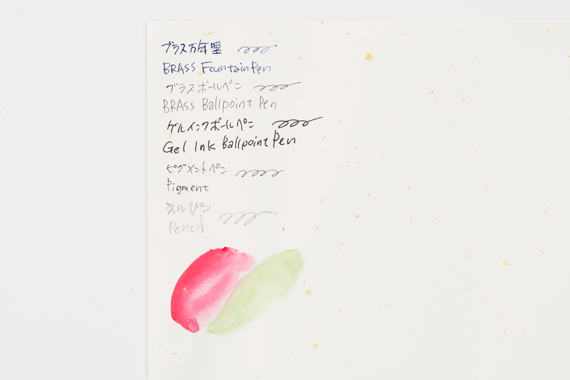 ブラス万年筆
BRASS Fountain Pen
ブラスボールペン
BRASS Ballpoint Pen
ゲルインクボールペン
Gel Ink Ballpoint Pen
ピグメントペン
Pigment
えんぴつ
Pencil